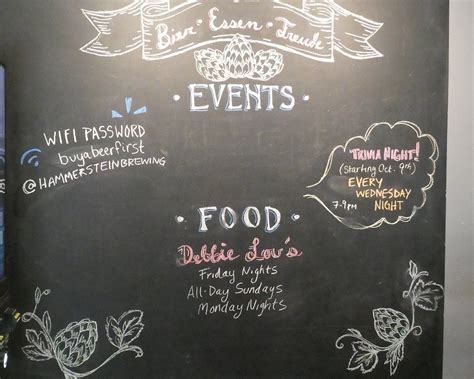 Bier · Essen · Freude
· EVENTS ·
WIFI PASSWORD
buyabeerfirst
@HAMMERSTEINBREWING
TRIVIA NIGHT!
(Starting Oct. 9th)
EVERY
WEDNESDAY
NIGHT
7-9pm
· FOOD ·
Debbie Lou's
Friday Nights
All-Day Sundays
Monday Nights